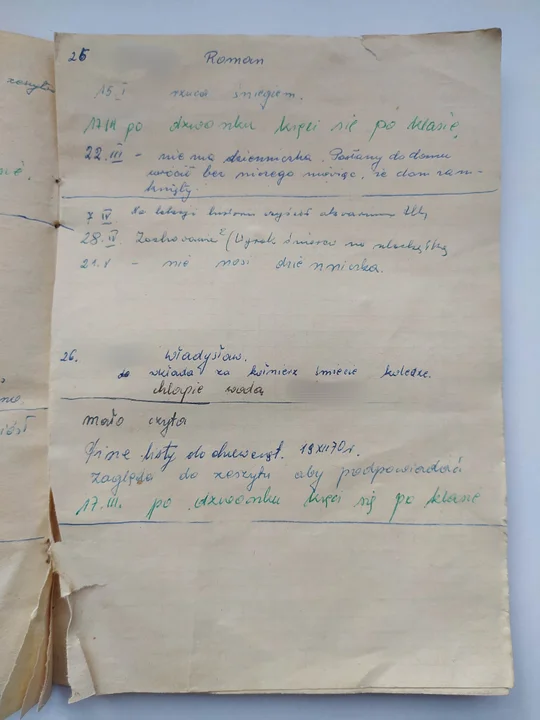 25 Roman
15.I rzuca śniegiem.
17.III po dzwonku kręci się po klasie,
22.III - nie ma dzienniczka. Posłany do domu
wrócił bez niczego mówiąc, że dom zam-
knięty.
7 IV Na lekcji historii czyścił
28.IV. Zachowanie
21.V - nie nosi dzienniczka.
26. Władysław.
do wkłada za kołnierz śmiecie koledze.
chlapie wodą
mało czyta
Pisze listy do dziewcząt. 19XII70r.
zagląda do zeszytu aby podpowiadać
17.III. po dzwonku kręci się po klasie